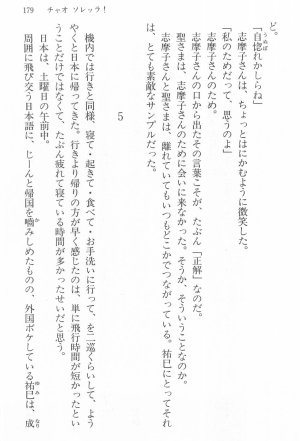 179　チャオ ソレッラ！
ど。
「自惚れかしらね」
志摩子さんは、ちょっとはにかむように微笑した。
「私のためだって、思うのよ」
志摩子さんのため。
志摩子さんの口から出たその言葉こそが、たぶん「正解」なのだ。
聖さまは、志摩子さんのために会いに来なかった。そうか、そういうことなのか。
志摩子さんと聖さまは、離れていてもいつもどこかでつながっている。祐巳にとってそれ
は、とても素敵なサンプルだった。
5
機内では行きと同様、寝て・起きて・食べて・お手洗いに行って、を二巡くらいして、よう
やくと日本に帰ってきた。行きより帰りの方が早く感じたのは、単に飛行時間が短かったとい
うことだけではなくて、たぶん疲れて寝ている時間が多かったせいだと思う。
日本は、土曜日の午前中。
周囲に飛び交う日本語に、じーんと帰国を噛みしめたものの、外国ボケしている祐巳は、成